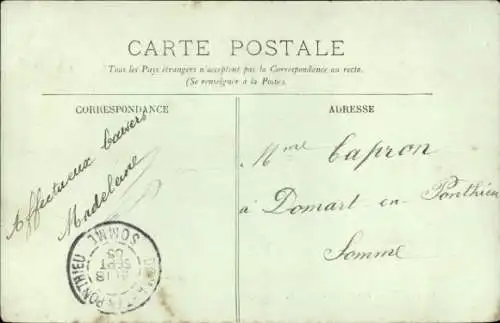 CARTE POSTALE
Tous les Pays étrangers n'acceptent pas la Correspondance au recto.
(Se renseigner à la Poste).
CORRESPONDANCE
Affectueux baisers
Madeleine
ADRESSE
Mme Capron
à Domart en Ponthieu
Somme
DOMART-EN-PONTHIEU
18
SEPT
05
SOMME